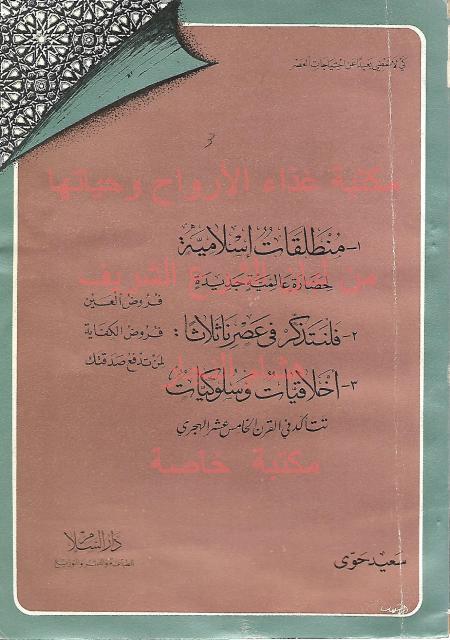 كي لا نمضي بعيدًا عن احتياجات العصر
مكتبة غذاء الأرواح وحياتها
١- منطلقات إسلامية
لحضارة عالمية جديدة
من الشريف
فروض العين
٢- فلنتذكر في عصرنا ثلاثًا:
فروض الكفاية
لمن تدفع صدقتك
٣- أخلاقيات وسلوكيات
تتأكد في القرن الخامس عشر الهجري
مكتبة خاصة
دار السلام
للطباعة والنشر والتوزيع
سعيد حوى